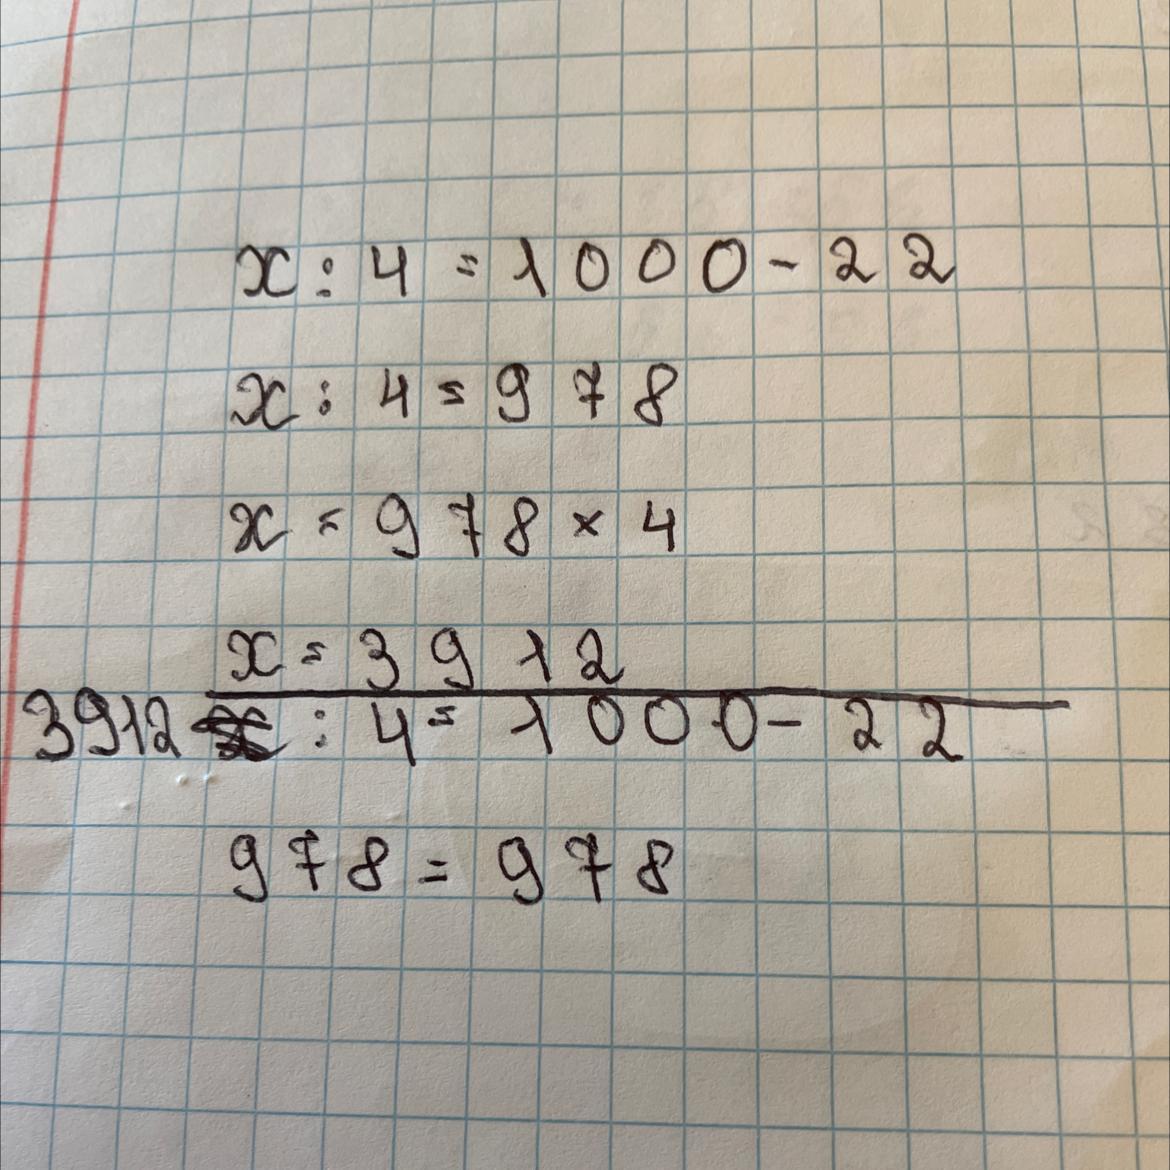 x : 4 = 1000 - 22
x : 4 = 978
x = 978 × 4
x = 3912
3912 : 4 = 1000 - 22
978 = 978